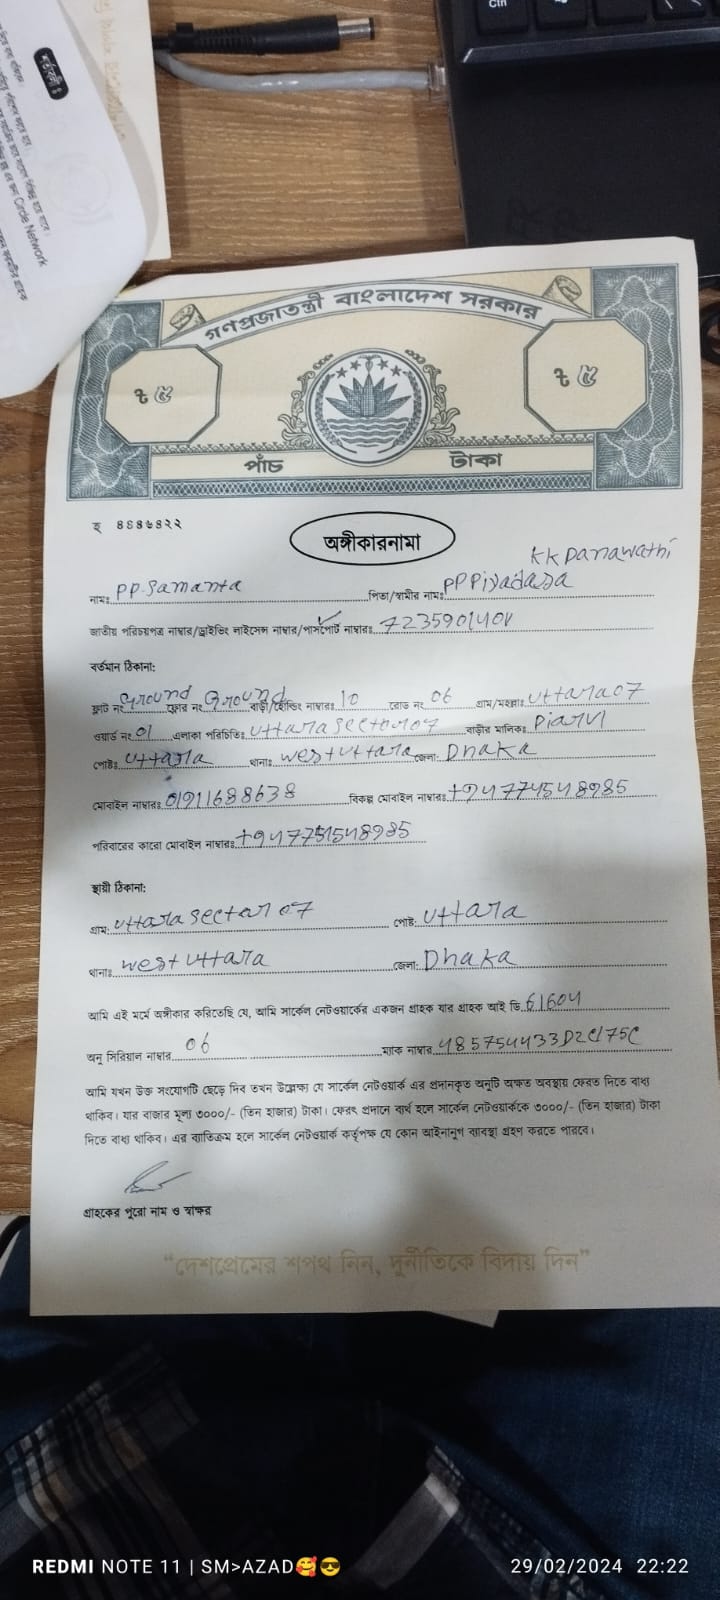 শর্তাবলীঃ
Circle Network
Ctrl
গণপ্রজাতন্ত্রী বাংলাদেশ সরকার
৳ ৫
৳ ৫
পাঁচ টাকা
হ ৪৪৪৬৪২২
অঙ্গীকারনামা
KK Danawathi
নামঃ PP Samanta পিতা/স্বামীর নামঃ PP Piyadasa
জাতীয় পরিচয়পত্র নাম্বার/ড্রাইভিং লাইসেন্স নাম্বার/পাসপোর্ট নাম্বারঃ 723590140V
বর্তমান ঠিকানা:
ফ্লাট নং Ground ফ্লোর নং Ground বাড়ী/হোল্ডিং নাম্বারঃ 10 রোড নং 06 গ্রাম/মহল্লাঃ Uttara 07
ওয়ার্ড নং 01 এলাকা পরিচিতিঃ Uttara sector 07 বাড়ীর মালিকঃ
পোষ্টঃ Uttara থানাঃ West Uttara জেলা: Dhaka
মোবাইল নাম্বারঃ 01911688638 বিকল্প মোবাইল নাম্বারঃ +94774548985
পরিবারের কারো মোবাইল নাম্বারঃ
স্থায়ী ঠিকানা:
গ্রাম: Uttara sector 07 পোষ্ট: Uttara
থানাঃ West Uttara জেলা: Dhaka
আমি এই মর্মে অঙ্গীকার করিতেছি যে, আমি সার্কেল নেটওয়ার্কের একজন গ্রাহক যার গ্রাহক আই ডি 61604
অনু সিরিয়াল নাম্বার 06 ম্যাক নাম্বার 485754433D2C175C
আমি যখন উক্ত সংযোগটি ছেড়ে দিব তখন উল্লেখ্য যে সার্কেল নেটওয়ার্ক এর প্রদানকৃত অনুটি অক্ষত অবস্থায় ফেরত দিতে বাধ্য
থাকিব। যার বাজার মূল্য ৩০০০/- (তিন হাজার) টাকা। ফেরৎ প্রদানে ব্যর্থ হলে সার্কেল নেটওয়ার্ককে ৩০০০/- (তিন হাজার) টাকা
দিতে বাধ্য থাকিব। এর ব্যাতিক্রম হলে সার্কেল নেটওয়ার্ক কর্তৃপক্ষ যে কোন আইনানুগ ব্যাবস্থা গ্রহণ করতে পারবে।
গ্রাহকের পুরো নাম ও স্বাক্ষর
“দেশপ্রেমের শপথ নিন, দুর্নীতিকে বিদায় দিন”
REDMI NOTE 11 | SM>AZAD🥰😎 29/02/2024 22:22